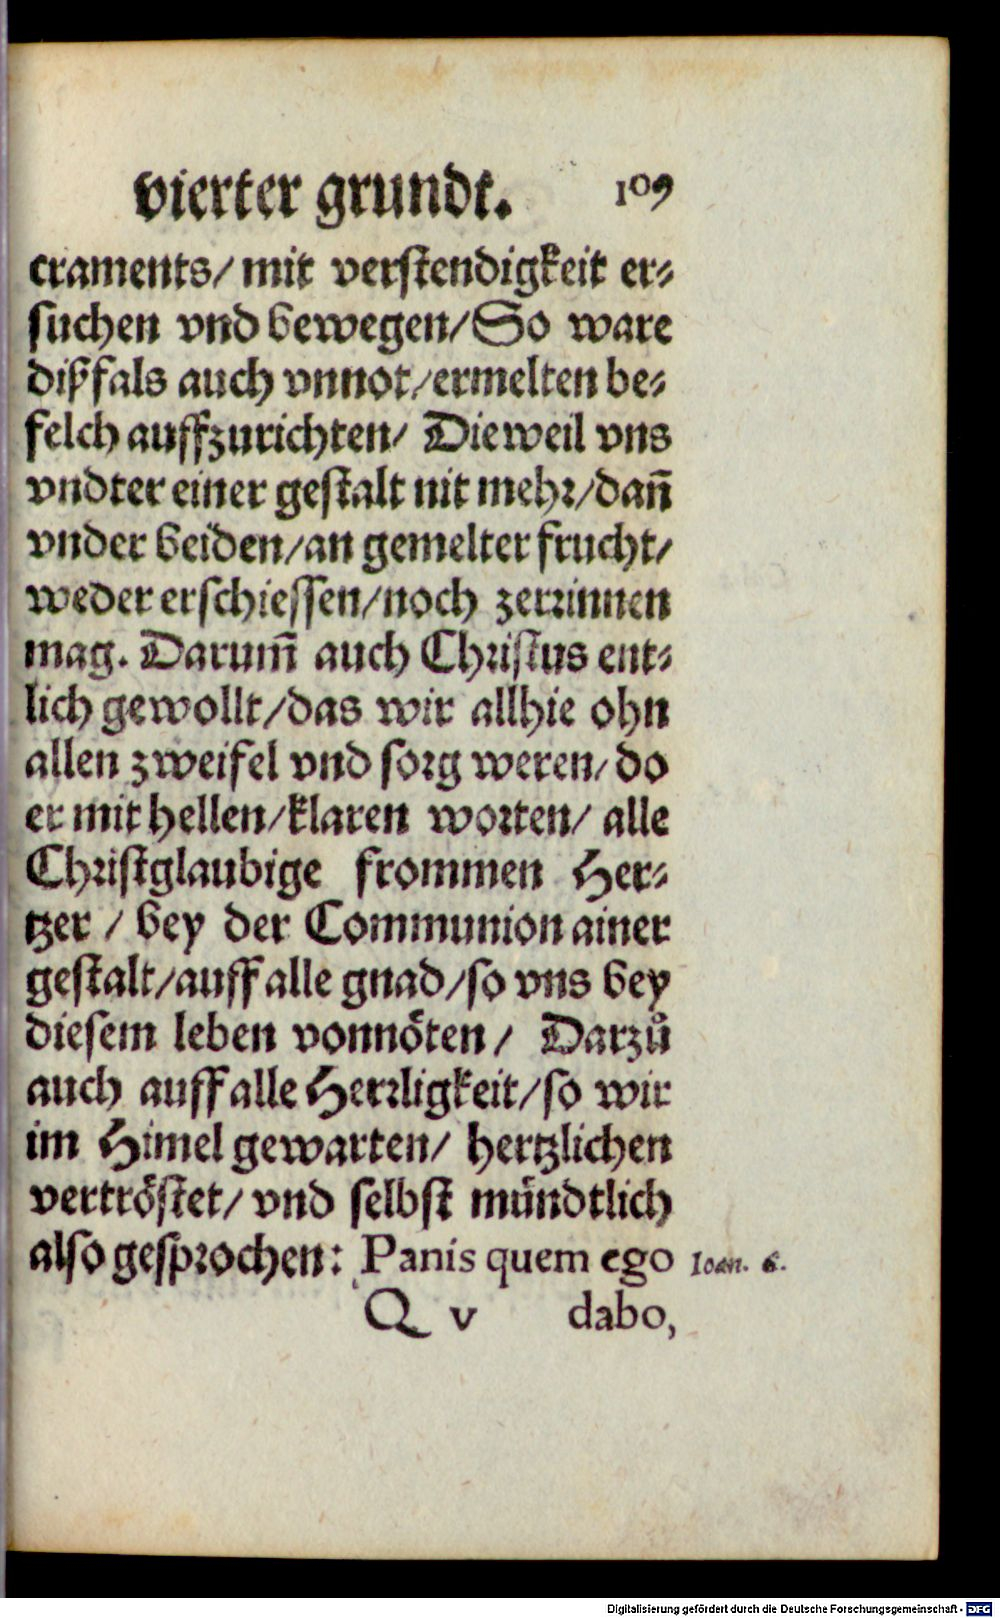 vierter grundt. 109
craments/ mit verstendigkeit er⸗
suchen vnd bewegen/ So ware
dißfals auch vnnot/ ermelten be⸗
felch auffzurichten/ Dieweil vns
vndter einer gestalt nit mehr/ dañ
vnder beiden/ an gemelter frucht/
weder erschiessen/ noch zerrinnen
mag. Darum̃ auch Christus ent⸗
lich gewollt/ das wir allhie ohn
allen zweifel vnd sorg weren/ do
er mit hellen/ klaren worten/ alle
Christglaubige frommen Her⸗
tzer / bey der Communion ainer
gestalt/ auff alle gnad/ so vns bey
diesem leben vonnöten/ Darzů
auch auff alle Herrligkeit/ so wir
im Himel gewarten/ hertzlichen
vertröstet/ vnd selbst mündtlich
also gesprochen: Panis quem ego Ioan. 6.
Q v dabo,
Digitalisierung gefördert durch die Deutsche Forschungsgemeinschaft - DFG